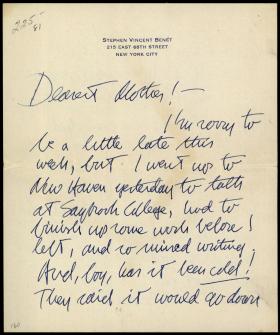 225
81
STEPHEN VINCENT BENÉT
215 EAST 68TH STREET
NEW YORK CITY
Dearest Mother!—
I'm sorry to
be a little late this
week, but I went up to
New Haven yesterday to talk
at Saybrook College, had to
finish up some work before I
left, and so missed writing.
And, boy, has it been cold!
They said it would go down